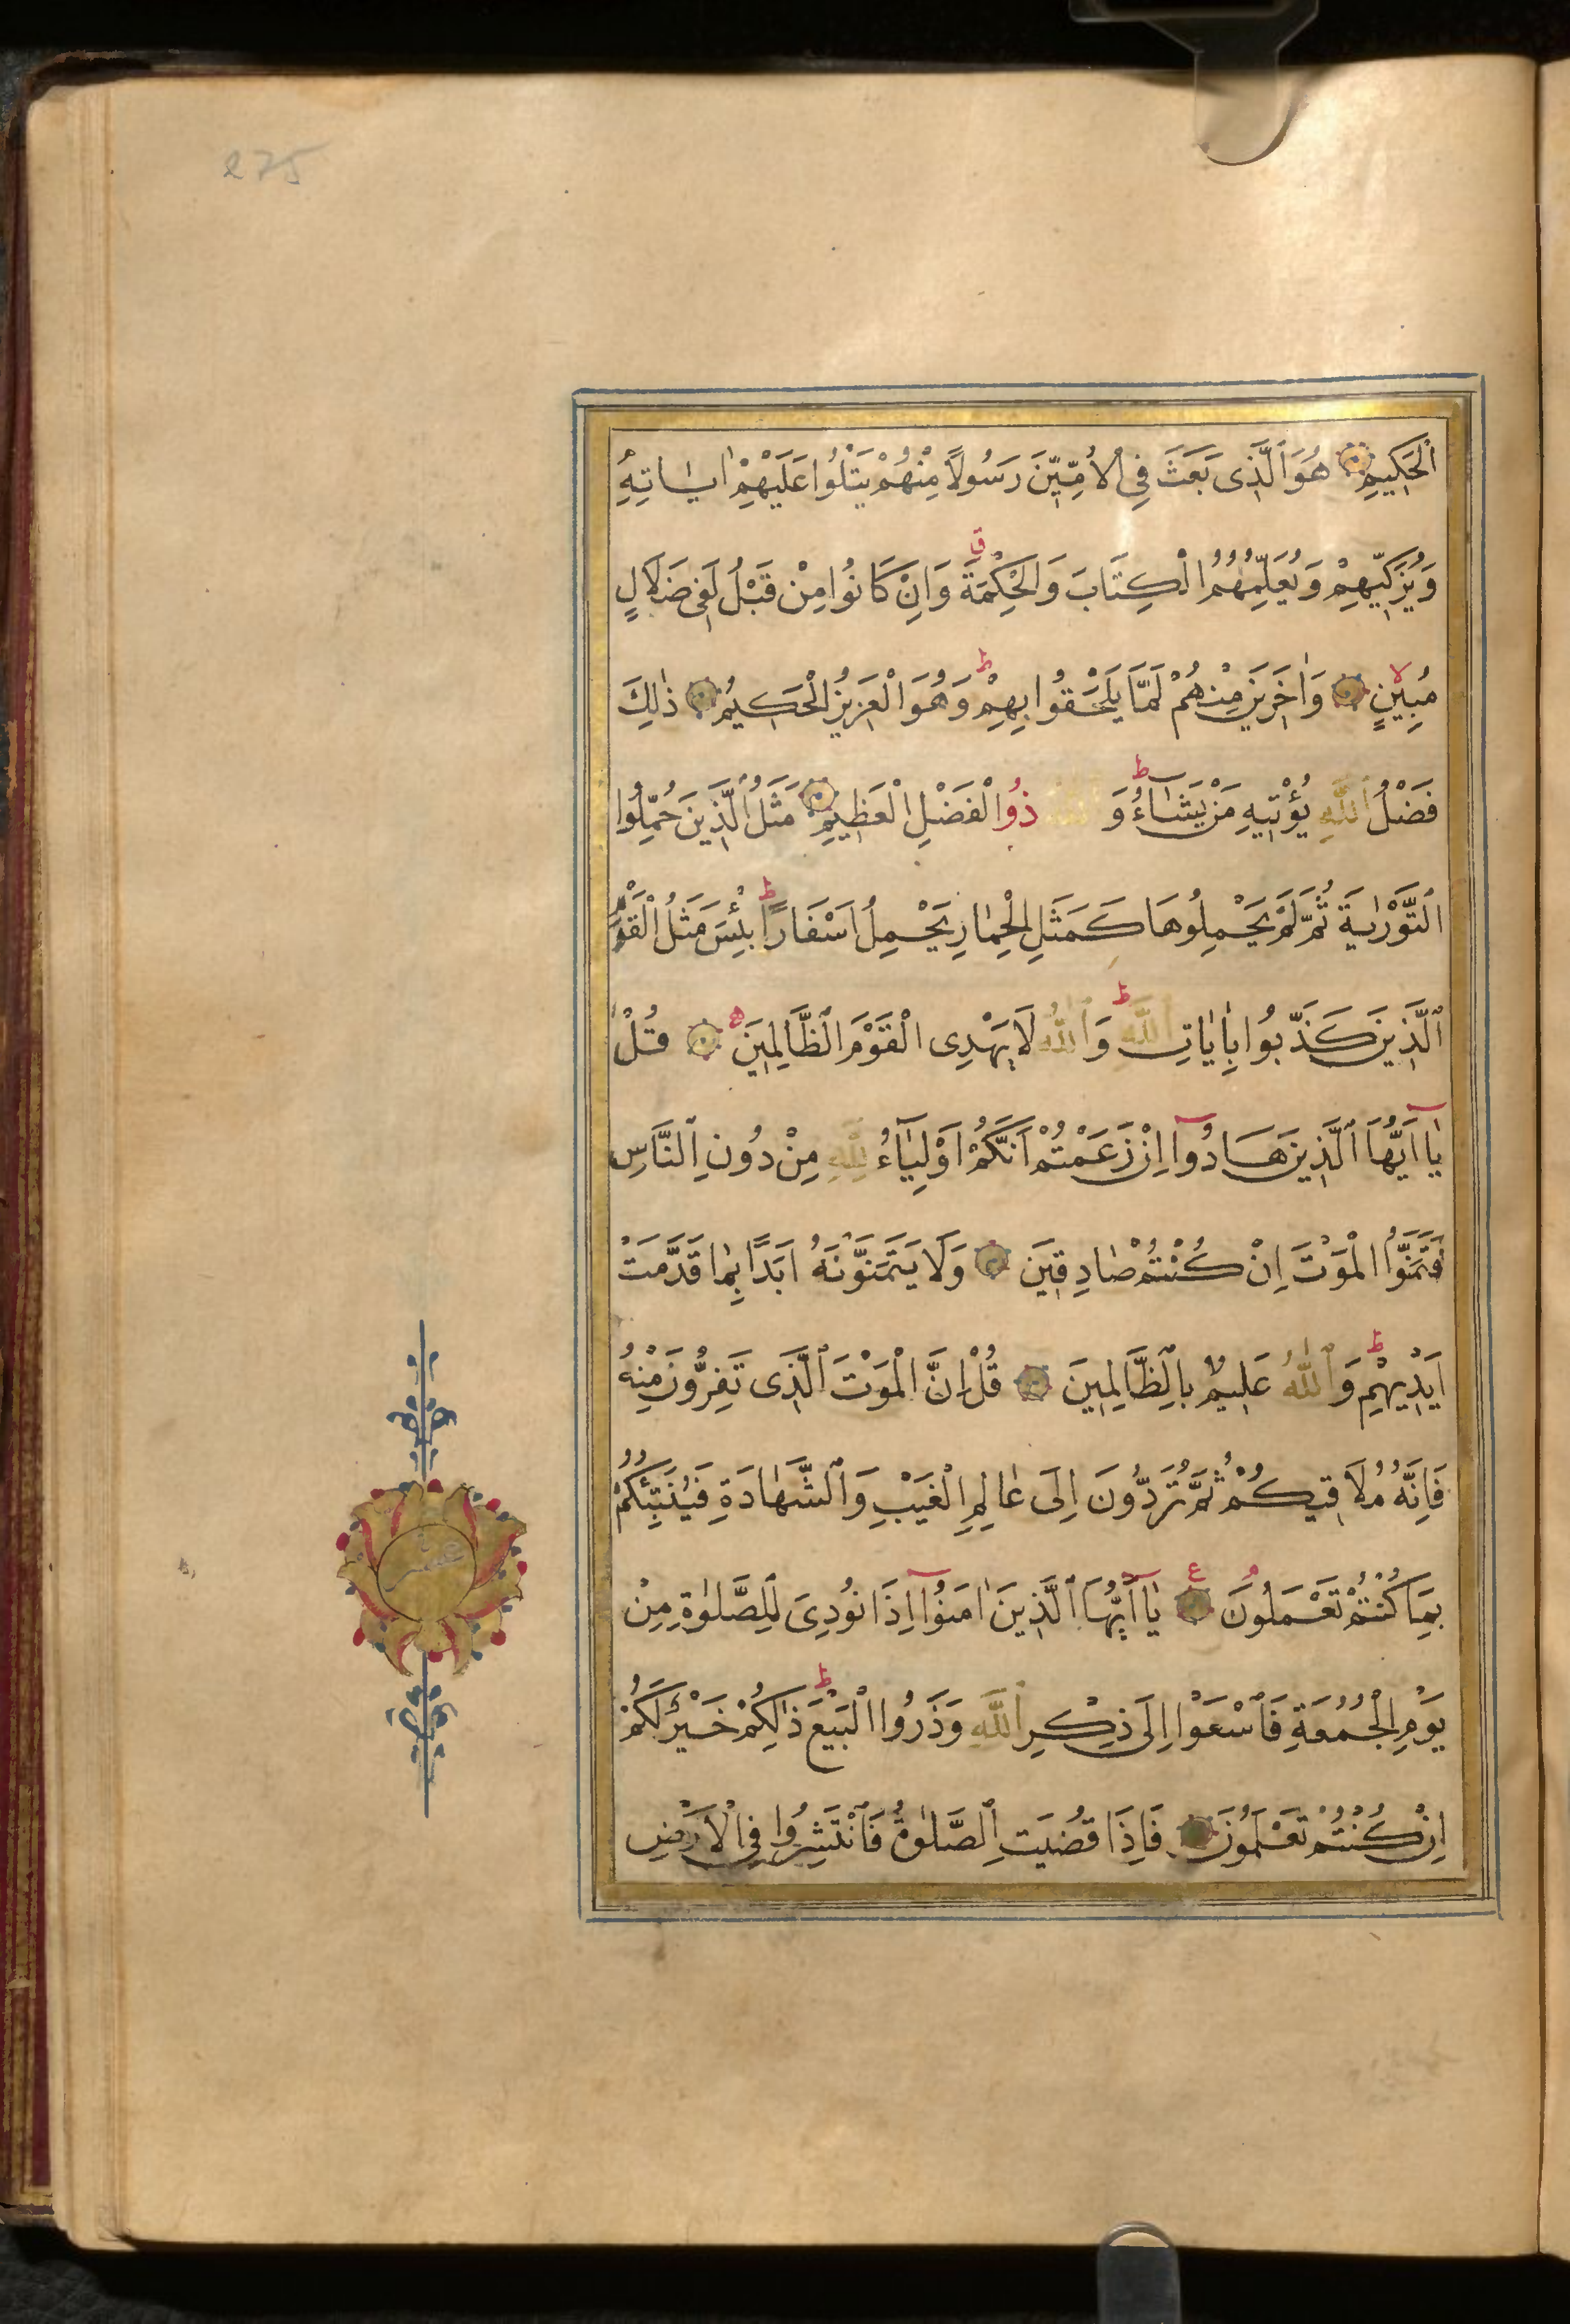 275
اَلْحَكِيمِ هُوَ الَّذِى بَعَثَ فِى الْاُمِّيّنَ رَسُولًا مِنْهُمْ يَتْلُوا عَلَيْهِمْ اٰيَاتِهِ
وَيُزَكِّيهِمْ وَيُعَلِّمُهُمُ الْكِتَابَ وَالْحِكْمَةَ ق وَاِنْ كَانُوا مِنْ قَبْلُ لَفِى ضَلَالٍ
مُبِينٍ لا وَاٰخَرِينَ مِنْهُمْ لَمَّا يَلْحَقُوا بِهِمْ ط وَهُوَ الْعَزِيزُ الْحَكِيمُ ذٰلِكَ
فَضْلُ اللّٰهِ يُؤْتِيهِ مَنْ يَشَاءُ ط وَاللّٰهُ ذُوا الْفَضْلِ الْعَظِيمِ مَثَلُ الَّذِينَ حُمِّلُوا
التَّوْرٰيةَ ثُمَّ لَمْ يَحْمِلُوهَا كَمَثَلِ الْحِمَارِ يَحْمِلُ اَسْفَارًا ط بِئْسَ مَثَلُ الْقَوْمِ
الَّذِينَ كَذَّبُوا بِاٰيَاتِ اللّٰهِ ط وَاللّٰهُ لَا يَهْدِى الْقَوْمَ الظَّالِمِينَ ه قُلْ
يَا اَيُّهَا الَّذِينَ هَادُوا اِنْ زَعَمْتُمْ اَنَّكُمْ اَوْلِيَاءُ لِلّٰهِ مِنْ دُونِ النَّاسِ
فَتَمَنَّوُا الْمَوْتَ اِنْ كُنْتُمْ صَادِقِينَ وَلَا يَتَمَنَّوْنَهُ اَبَدًا بِمَا قَدَّمَتْ
اَيْدِيهِمْ ط وَاللّٰهُ عَلِيمٌ بِالظَّالِمِينَ قُلْ اِنَّ الْمَوْتَ الَّذِى تَفِرُّونَ مِنْهُ
فَاِنَّهُ مُلَاقِيكُمْ ثُمَّ تُرَدُّونَ اِلَى عَالِمِ الْغَيْبِ وَالشَّهَادَةِ فَيُنَبِّئُكُمْ
بِمَا كُنْتُمْ تَعْمَلُونَ ع يَا اَيُّهَا الَّذِينَ اٰمَنُوا اِذَا نُودِىَ لِلصَّلٰوةِ مِنْ
يَوْمِ الْجُمُعَةِ فَاسْعَوْا اِلَى ذِكْرِ اللّٰهِ وَذَرُوا الْبَيْعَ ط ذٰلِكُمْ خَيْرٌ لَكُمْ
اِنْ كُنْتُمْ تَعْلَمُونَ فَاِذَا قُضِيَتِ الصَّلٰوةُ فَانْتَشِرُوا فِى الْاَرْضِ
عشر